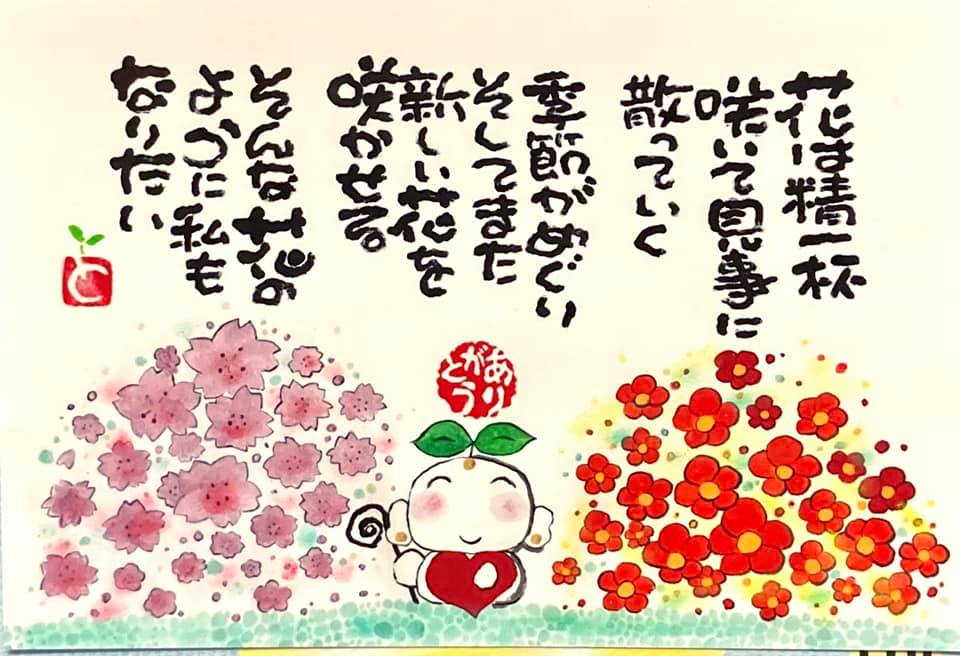 花は精一杯
咲いて見事に
散っていく
季節がめぐい
そしてまた
新しい花を
咲かせる。
そんな花の
ように私も
なりたい
と
ありがとう